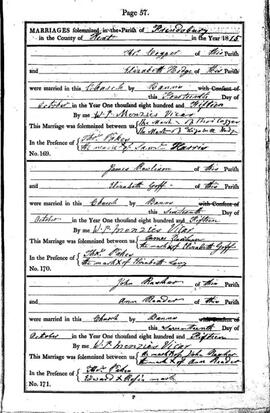 Page 57.
MARRIAGES solemnized in the Parish of Frindsbury
in the County of Kent in the Year 1815
Thos Cogger of this Parish
and Elizabeth Hodge of this Parish
were married in this Church by Banns with Consent of
this Day of
October in the Year One thousand eight hundred and Fifteen
By me W. P. Menzies Vicar
This Marriage was solemnized between The Mark of Thos Cogger
The Mark of Elizabeth Hodge
In the Presence of Thos Pike
the mark of Saml Harris
No. 169.
James of this Parish
and Elizabeth Goff of this Parish
were married in this Church by Banns with Consent of
this sixteenth Day of
October in the Year One thousand eight hundred and Fifteen
By me W. P. Menzies Vicar
This Marriage was solemnized between James
the mark X of Elizabeth Goff
In the Presence of Thos Pike
the mark X of Elizabeth
No. 170.
John of this Parish
and Ann Reader of this Parish
were married in this Church by Banns with Consent of
this seventeenth Day of
October in the Year One thousand eight hundred and Fifteen
By me W. P. Menzies Vicar
This Marriage was solemnized between the mark of John
the mark X of Ann Reader
In the Presence of Thos Pike
Edward X mark
No. 171.
P